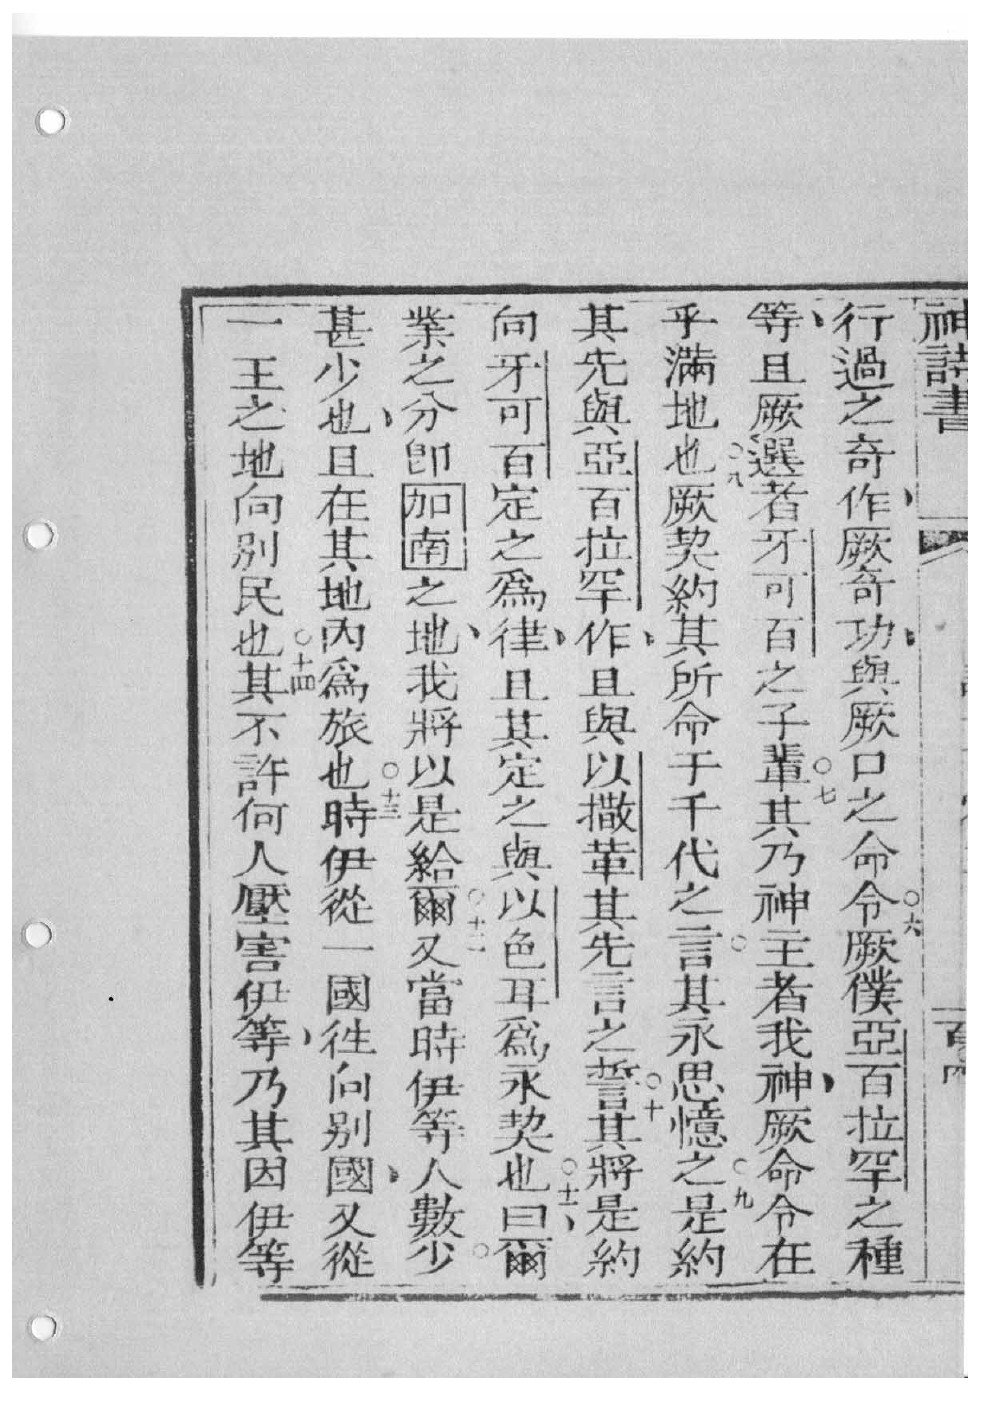 神詩書
行過之奇作厥奇功與厥口之命令○六厥僕亞百拉罕之種
等且厥選者牙可百之子輩○七其乃神主者我神厥命令在
乎滿地也○八厥契約其所命于千代之言○其永思憶之○九是約
其先與亞百拉罕作且與以撒革其先言之誓○十其將是約
向牙可百定之爲律且其定之與以色耳爲永契也○十一曰爾
業之分卽加南之地我將以是給爾○十二又當時伊等人數少○
甚少也且在其地內爲旅也○十三時伊從一國徃向别國又從
一王之地向别民也○十四其不許何人壓害伊等乃其因伊等